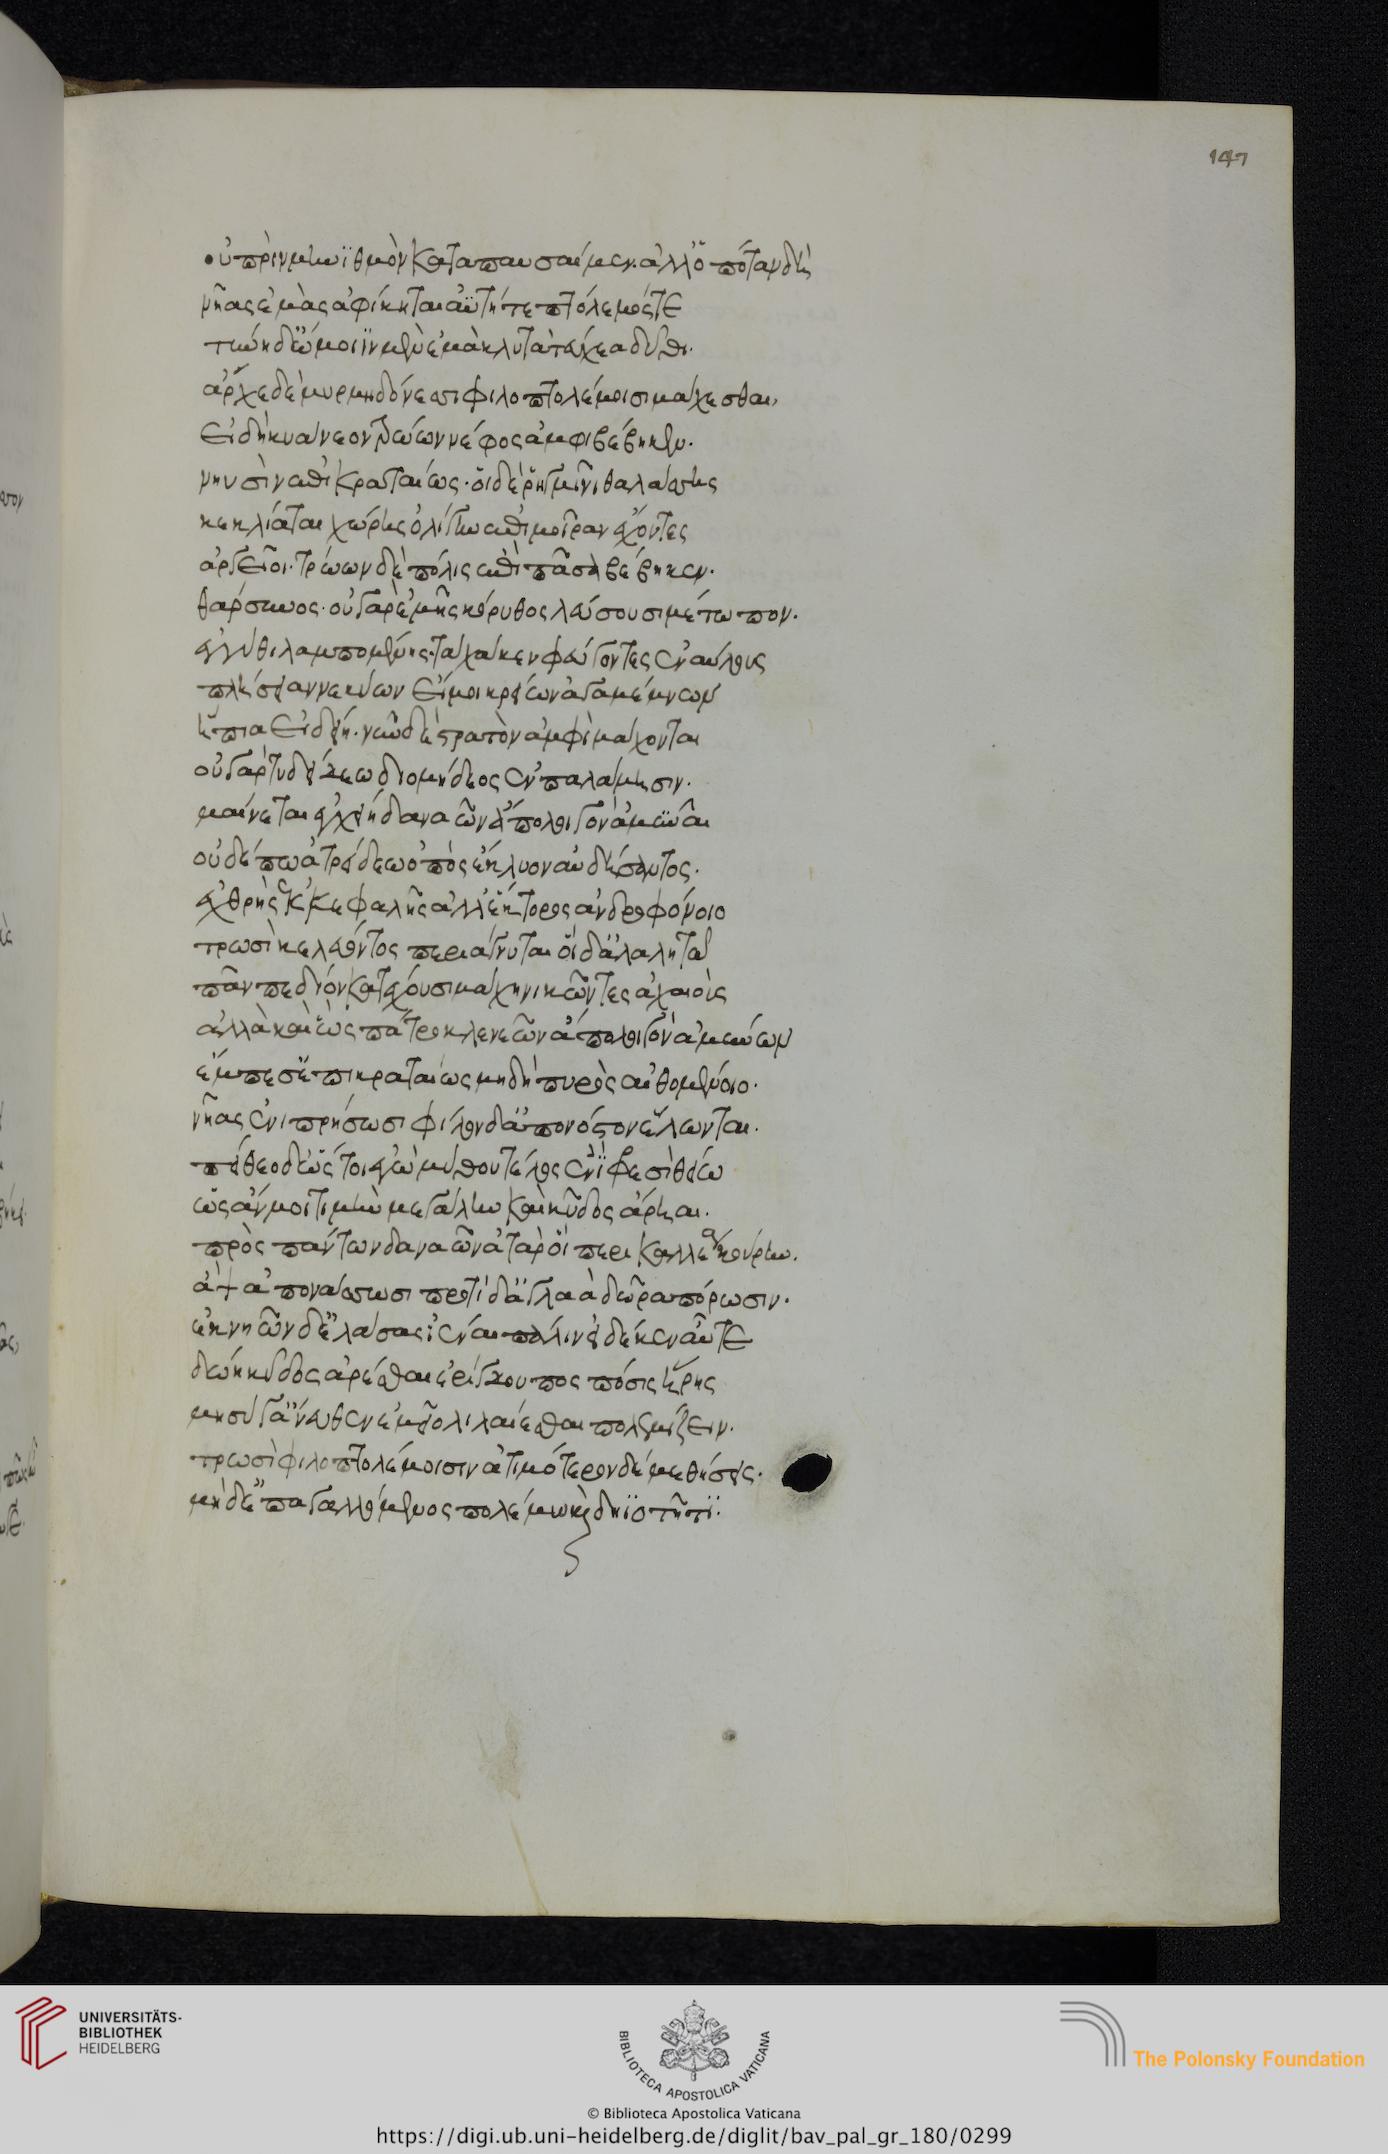 147
οὐ πρὶν μηνιθμὸν καταπαυσαίμεν. ἀλλ' ὁπόταν δὴ
νῆας ἐμὰς ἀφίκηται ἀϋτή τε πτόλεμός τε
τύνη δ' ὤμοιϊν μὲν ἐμὰ κλυτὰ τεύχεα δῦθι.
ἄρχε δὲ μυρμιδόνεσσι φιλοπτολέμοισι μάχεσθαι,
εἰ δὴ κυάνεον τρώων νέφος ἀμφιβέβηκεν.
νηυσὶν ἐπικραταίως. οἱ δὲ ῥηγμῖνι θαλάσσης
κεκλίαται χώρης ὀλίγην ἔτι μοῖραν ἔχοντες
ἀργεῖοι. τρώων δὲ πόλις ἐπὶ πᾶσα βέβηκεν.
θάρσυνος. οὐ γὰρ ἐμῆς κόρυθος λεύσουσι μέτωπον.
ἐγγύθι λαμπομένης. τάχα κεν φεύγοντες ἐναύλους
πλήσειαν νεκύων εἴ μοι κρείων ἀγαμέμνων
ἤπια εἰδείη. νῦν δὲ στρατὸν ἀμφὶ μάχονται
οὐ γὰρ τυδείδεω διομήδεος ἐν παλάμησιν.
μαίνεται ἐγχείη δαναῶν ἀπὸ λοιγὸν ἀμῦναι
οὐδέ πω ἀτρείδεω ὀπὸς ἔκλυον αὐδήσαντος.
ἐχθρῆς ἐκ κεφαλῆς ἀλλ' ἕκτορος ἀνδροφόνοιο
τρωσὶ κελεύοντος περιάγνυται οἱ δ' ἀλαλητῷ
πᾶν πεδίον κατέχουσι μάχῃ νικῶντες ἀχαιούς
ἀλλὰ καὶ ὣς πάτροκλε νεῶν ἀπὸ λοιγὸν ἀμύνων
ἔμπεσ' ἐπικραταίως μὴ δὴ πυρὸς αἰθομένοιο.
νῆας ἐνιπρήσωσι φίλον δ' ἀπὸ νόστον ἕλωνται.
πείθεο δ' ὥς τοι ἐγὼ μύθου τέλος ἐν φρεσὶ θείω
ὡς ἄν μοι τιμὴν μεγάλην καὶ κῦδος ἄρηαι.
πρὸς πάντων δαναῶν ἀτὰρ οἱ περικαλλέα κούρην.
ἂψ ἀπονάσσωσι προτὶ δ' ἀγλαὰ δῶρα πόρωσιν.
ἐκ νηῶν δ' ἐλάσας ἰέναι πάλιν εἰ δέ κεν αὖτε
δώῃ κῦδος ἀρέσθαι ἐρίγδουπος πόσις ἥρης
μὴ σύ γ' ἄνευθεν ἐμεῖο λιλαίεσθαι πολεμίζειν.
τρωσὶ φιλοπτολέμοισιν ἀτιμότερον δέ με θήσεις.
μὴ δ' ἐπαγαλλόμενος πολέμῳ καὶ δηϊοτῆτι.
UNIVERSITÄTS-
BIBLIOTHEK
HEIDELBERG
BIBLIOTECA APOSTOLICA VATICANA
The Polonsky Foundation
© Biblioteca Apostolica Vaticana
https://digi.ub.uni-heidelberg.de/diglit/bav_pal_gr_180/0299